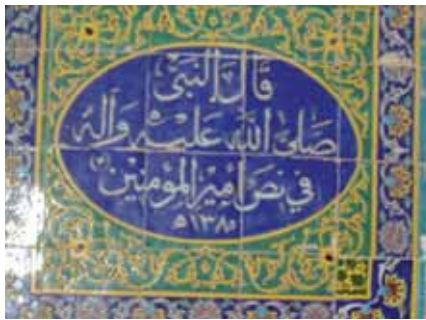 قال النبي
صلى الله عليه وآله
في نص امير المؤمنين (٢)
١٣٨٥ه